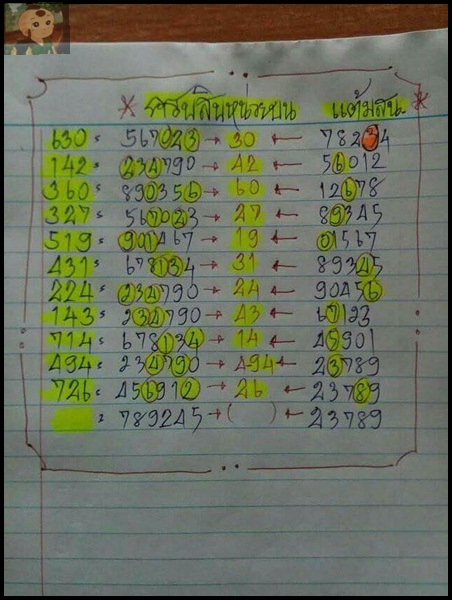 * ครบสิบหน่วยบน แต้มสน *
630 = 567023 → 30 ← 78234
142 = 234790 → 42 ← 56012
360 = 890356 → 60 ← 12678
327 = 567023 → 27 ← 89345
519 = 901467 → 19 ← 01567
431 = 678134 → 31 ← 89345
224 = 234790 → 24 ← 90456
143 = 234790 → 43 ← 67123
714 = 678134 → 14 ← 45901
494 = 234790 → 494 ← 23789
726 = 456912 → 26 ← 23789
= 789245 → ( ) ← 23789